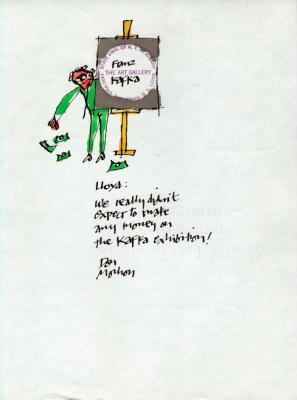 STATE UNIV. OF N.Y.
Franz
THE ART GALLERY
Kafka
Lloyd:
We really didn't
expect to make
any money on
the Kafka exhibition!
Dan